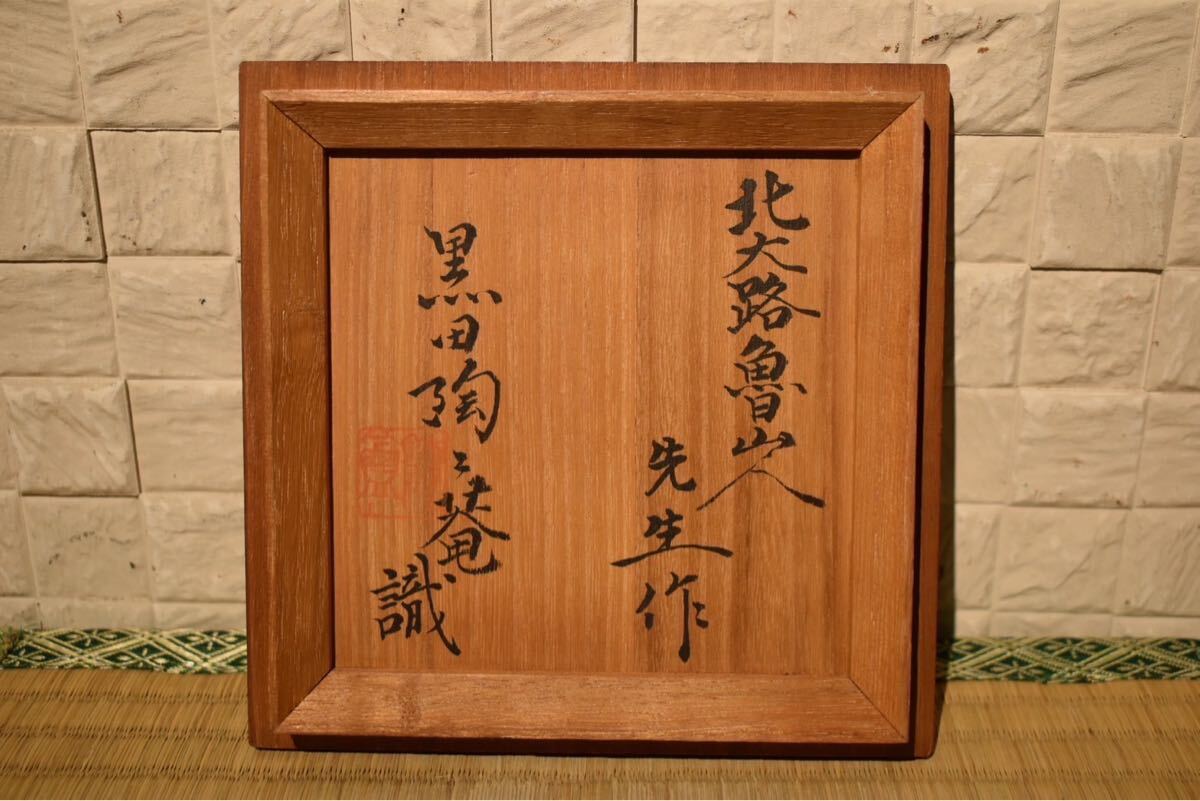 北大路魯山人
先生作
黒田陶〻菴
識